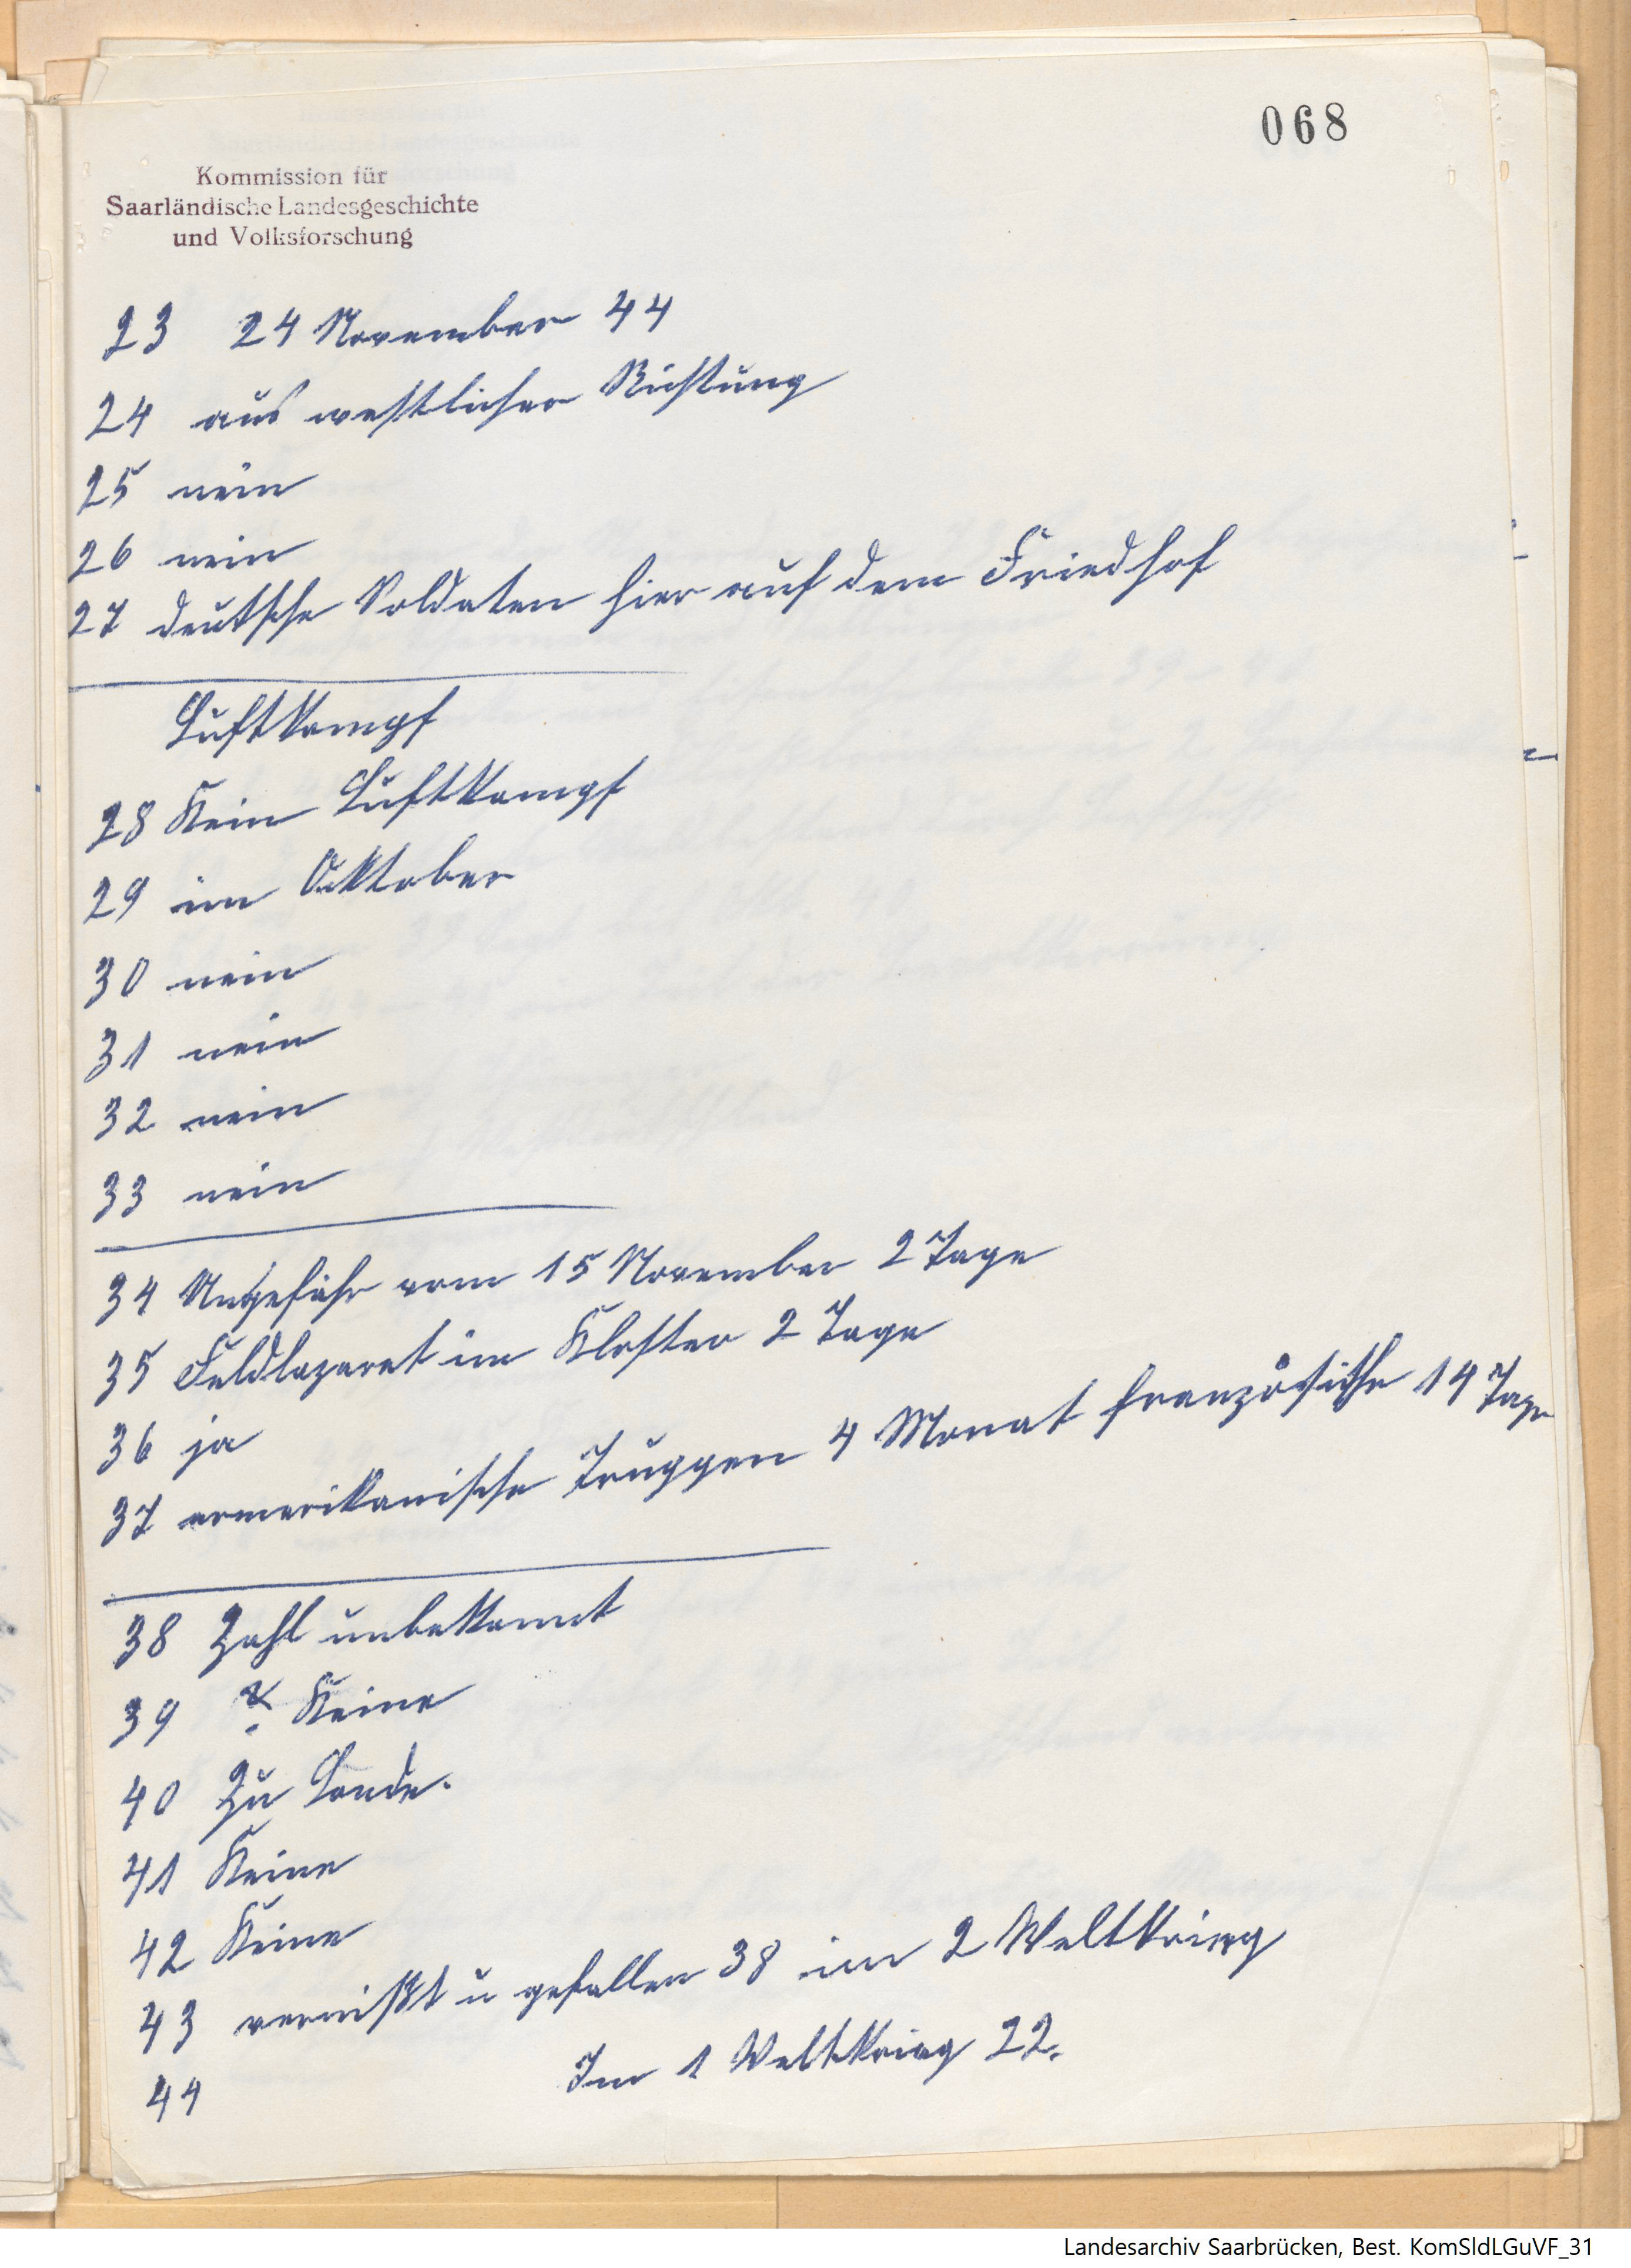 068
Kommission für
Saarländische Landesgeschichte
und Volksforschung
23 24 November 44
24 aus westlicher Richtung
25 nein
26 nein
27 deutsche Soldaten hier auf dem Friedhof
Luftkampf
28 Kein Luftkampf
29 im Oktober
30 nein
31 nein
32 nein
33 nein
34 Ungefähr vom 15 November 2 Tage
35 Feldlazaret im Kloster 2 Tage
36 ja
37 amerikanische Truppen 4 Monat französische 14 Tage
38 Zahl unbekannt
39 Keine
40 Zu Lande.
41 Keine
42 Keine
43 vermißt u gefallen 38 im 2 Weltkrieg
44 Im 1 Weltkrieg 22.
Landesarchiv Saarbrücken, Best. KomSldLGuVF_31